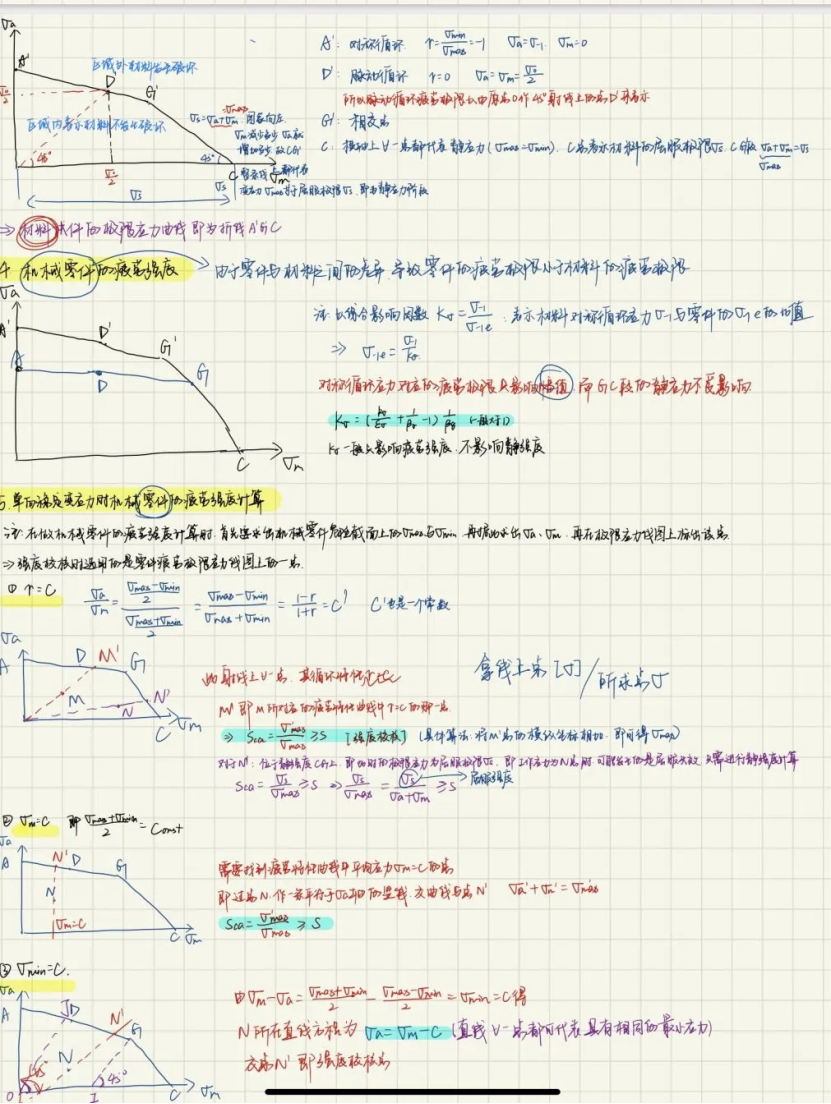 σa
A'
区域外材料发生破坏
D'
G'
σ0/2
区域内表示材料不发生破坏
45°
45°
σ0/2
σs
C σm
σs
σs=σa+σm
A': 对称循环 r=σmin/σmax=-1 σa=σ-1 σm=0
D': 脉动循环 r=0 σa=σm=σ0/2
所以脉动循环疲劳极限以由原点O作45°射线上的点D'来表示
G': 相交点
C: 横轴上∀一点都代表静应力(σmax=σmin). C点表示材料的屈服极限σs. σa+σm=σs
σmax
⇒ 材料试件的极限应力曲线即为折线A'G'C
4 机械零件的疲劳强度 → 由于零件与材料之间的差异, 导致零件的疲劳极限小于材料的疲劳极限
σa
A'
D'
G'
A
D
G
C σm
注: 以综合影响因数 Kσ=σ-1/σ-1e 表示材料对称循环应力σ-1与零件的σ-1e的比值
⇒ σ-1e=σ-1/Kσ
对称循环应力对应的疲劳极限只影响幅值, 而GC段的静应力不受影响
Kσ=(kσ/εσ+1/βσ-1)1/βq
Kσ一般只影响疲劳强度, 不影响静强度
5. 单向稳定变应力时机械零件的疲劳强度计算
注: 在做机械零件的疲劳强度计算时, 首先要求出机械零件危险截面上的σmax与σmin, 再据此求出σa、σm, 再在极限应力线图上标出该点
⇒ 强度校核时选用的是零件疲劳极限应力线图上的一点.
① r=C
σa/σm=((σmax-σmin)/2)/((σmax+σmin)/2)=(σmax-σmin)/(σmax+σmin)=(1-r)/(1+r)=C' C'也是一个常数
σa
A D M' G
M
N N'
C σm
此射线上∀一点, 其循环特性
拿线上点[σ]/所求点σ
M'即M所对应的疲劳特性曲线中r=C的那一点
⇒ Sca=σ'max/σmax≥S [强度校核] (具体算法: 将M'点的横纵坐标相加, 即可得σ'max)
对于N': 位于静强度CG上, 即此时的极限应力为屈服极限σs, 即工作应力为N点时, 可能发生的是屈服失效, 只需进行静强度计算
Sca=σs/σmax≥S ⇒ σs/σmax=σs/(σa+σm)≥S → 屈服强度
② σm=C 即(σmax+σmin)/2=Const
σa
A N' D G
N
σm=C
C σm
需要找到疲劳特性曲线中平均应力σm=C的点
即过点N, 作一条平行于σa轴的竖线, 交曲线与点N' σa'+σm'=σ'max
Sca=σ'max/σmax≥S
③ σmin=C.
σa
A
D N'
G
N
45°
45°
O I C σm
由σm-σa=(σmax+σmin)/2-(σmax-σmin)/2=σmin=C得
N所在直线方程为 σa=σm-C (直线∀一点都可代表具有相同的最小应力)
交点N'即强度校核点